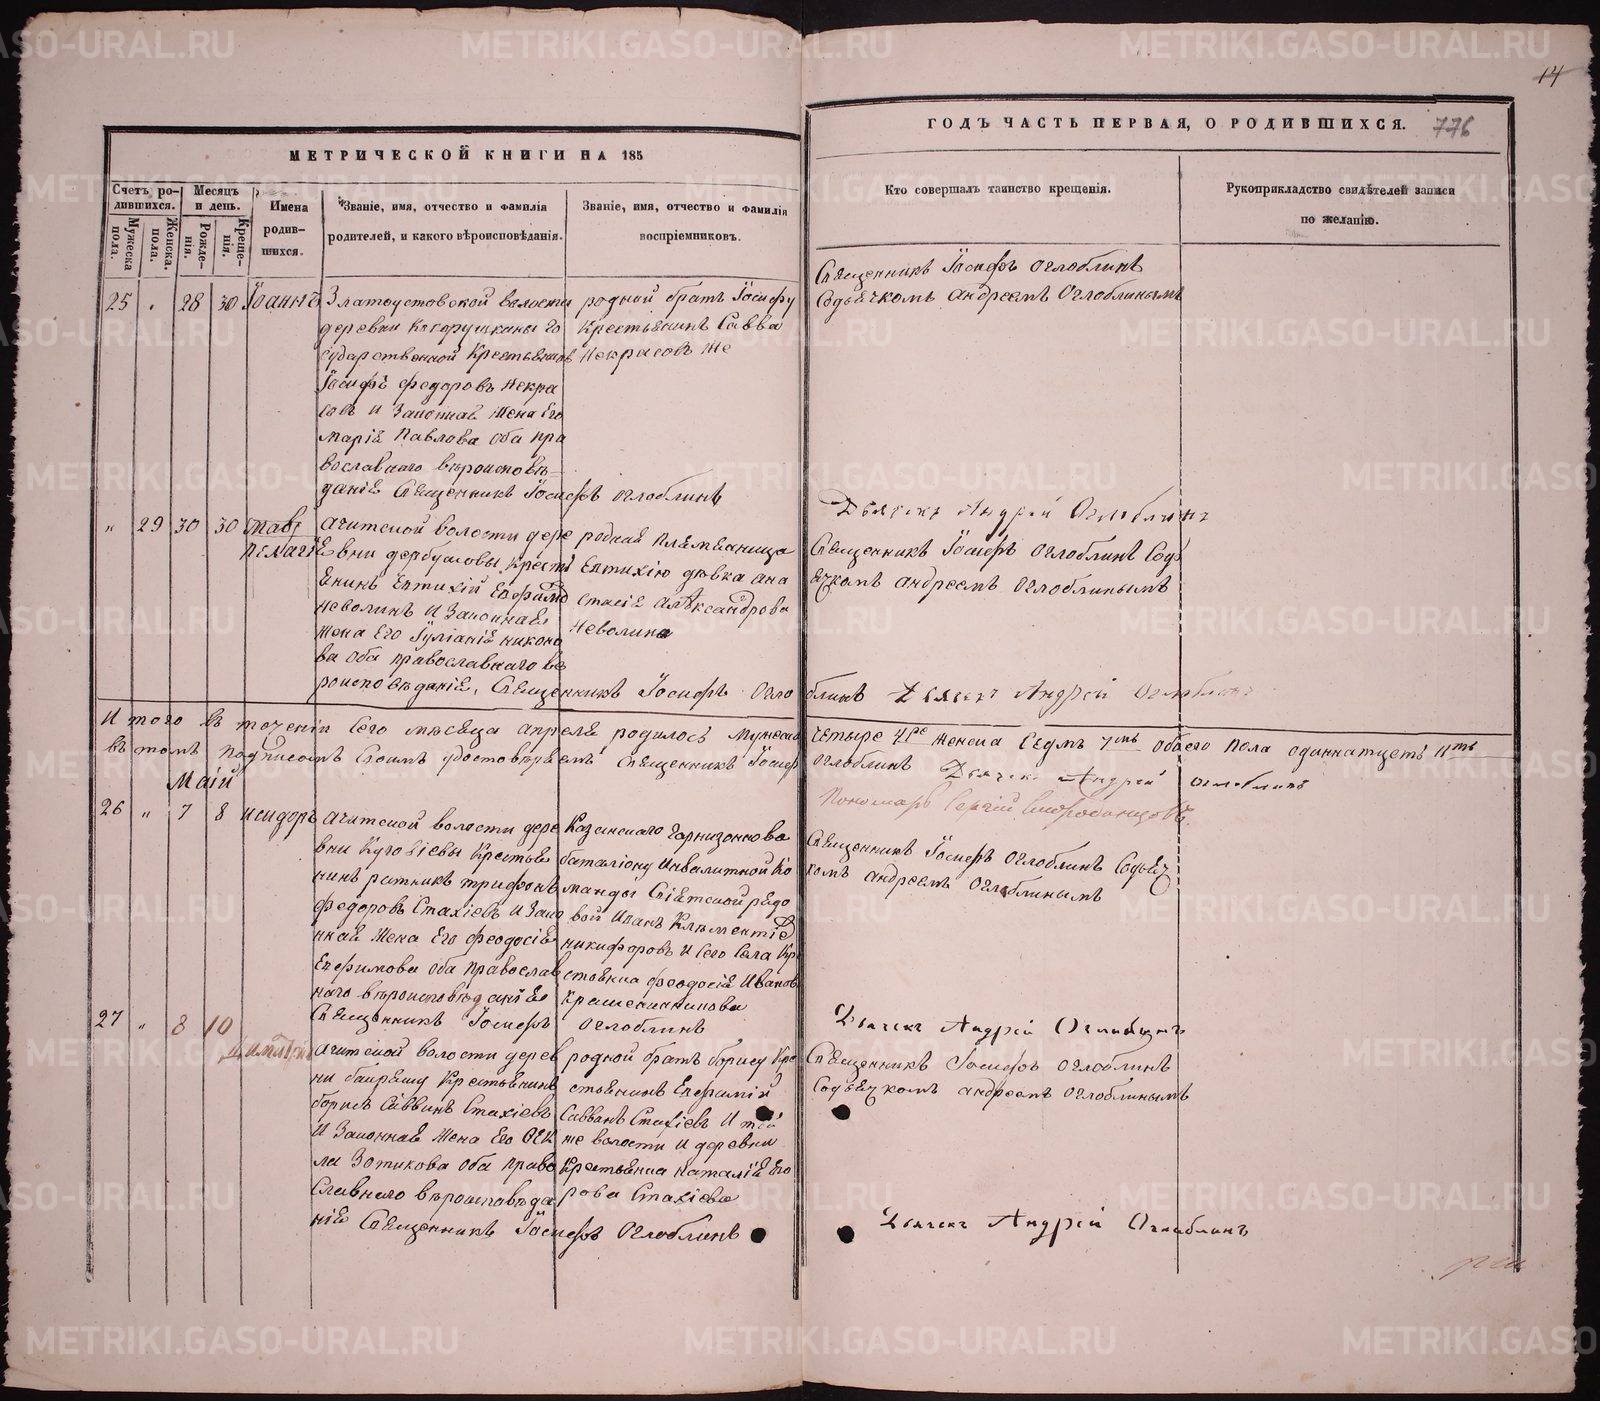 14
МЕТРИЧЕСКОЙ КНИГИ НА 185
ГОДЪ ЧАСТЬ ПЕРВАЯ, О РОДИВШИХСЯ. 776
Счетъ ро-
дившихся.
Мужеска
пола.
Женска.
пола.
Месяцъ
и день.
Рожде-
нія.
Креще-
нія.
Имена
родив-
шихся.
Званіе, имя, отчество и фамилія
родителей, и какого вѣроисповѣданія.
Званіе, имя, отчество и фамилія
воспріемниковъ.
Кто совершалъ таинство крещенія.
Рукоприкладство свидѣтелей записи
по желанію.
25 „ 28 30 Іоаннъ
Златоустовской волости
деревни
сударственной Крестьянинъ
Іосифъ Федоровъ Некра
совъ и Законная жена Его
Марія Павлова оба пра
вославнаго вѣроисповѣ-
данія Священникъ Іосифъ Оглоблинъ
родной братъ Іосифу
Крестьянинъ Савва
Некрасовъ же
Священникъ Іосифъ Оглоблинъ
Содьячкомъ Андреемъ Оглоблинымъ
Дьячекъ Андрей Оглоблинъ
„ 29 30 30
Пелагія
Ачитской волости дере
вни Крестья
янинъ Евтихій Ефимовъ
Неволинъ и Законная
жена Его Іуліанія Никоно
ва оба православнаго вѣ
роисповѣданія, Священникъ Іосифъ Огло
блинъ Дьячекъ Андрей Оглоблинъ
родная племяница
Евтихію дѣвка Ана
стасія Александрова
Неволина
Священникъ Іосифъ Оглоблинъ Содь
ячкомъ Андреемъ Оглоблинымъ
И того въ теченіи Сего мѣсяца апреля родилось Мужеска четыре 4ре женска Седмъ 7мь обоего пола одиннатцеть 11ть
въ томъ подписомъ Своимъ удостовѣряемъ Священникъ Іосифъ Оглоблинъ Дьячекъ Андрей Оглоблинъ
Пономарь Сергій
Маій
26 „ 7 8 Исидоръ
Ачитской волости дере
вни Крестья
нинъ ратникъ Трифонъ
Федоровъ Стахіевъ и Зако
нная жена Его Феодосія
Ефимова оба православ
наго вѣроисповѣданія
Священникъ Іосифъ Оглоблинъ
Казанскаго Гарнизоннова
баталіону Инвалитной Ко
манды рядо
вой Иванъ Климентіев
Никифоровъ и Сего Села Кре
стьянка Феодосія Иванов
Крашенинникова
Священникъ Іосифъ Оглоблинъ Содьяч
комъ Андреемъ Оглоблинымъ
Дьячекъ Андрей Оглоблинъ
27 „ 8 10
Ачитской волости дерев
ни Крестьянинъ
Борисъ Саввинъ Стахіевъ
и Законная жена Его Оек
ла Зотикова оба право
славнаго вѣроисповѣда
нія Священникъ Іосифъ Оглоблинъ
родной братъ Борису Кре
стьянинъ Ефимій
Саввинъ Стахіевъ и той
же волости и деревни
Крестьянка Наталія Его
рова Стахіева
Священникъ Іосифъ Оглоблинъ
Содьячкомъ Андреемъ Оглоблинымъ
Дьячекъ Андрей Оглоблинъ
METRIKI.GASO-URAL.RU